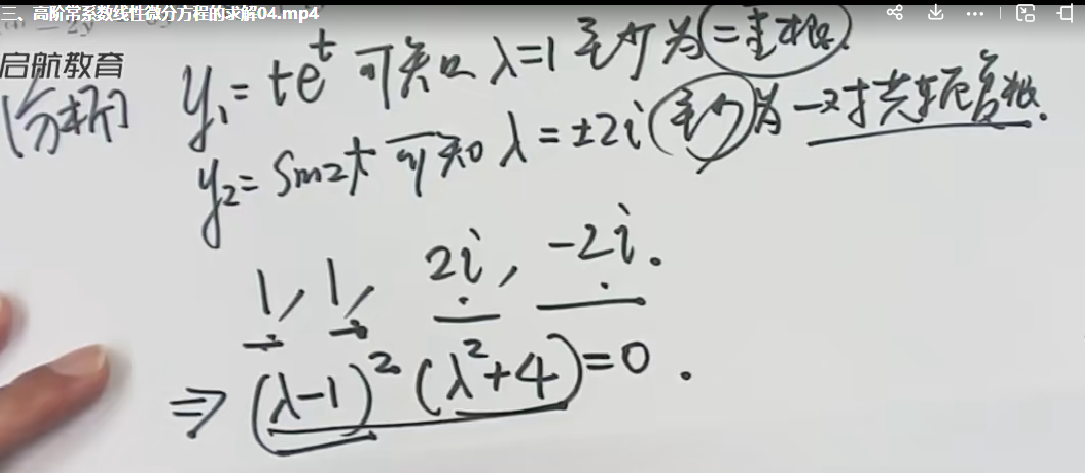 三、高阶常系数线性微分方程的求解04.mp4
启航教育
[分析] y₁=te^t 可知 λ=1 至少为二重根.
y₂=sin2t 可知 λ=±2i 至少为一对共轭复根.
1, 1, 2i, -2i.
⇒ (λ-1)²(λ²+4)=0.